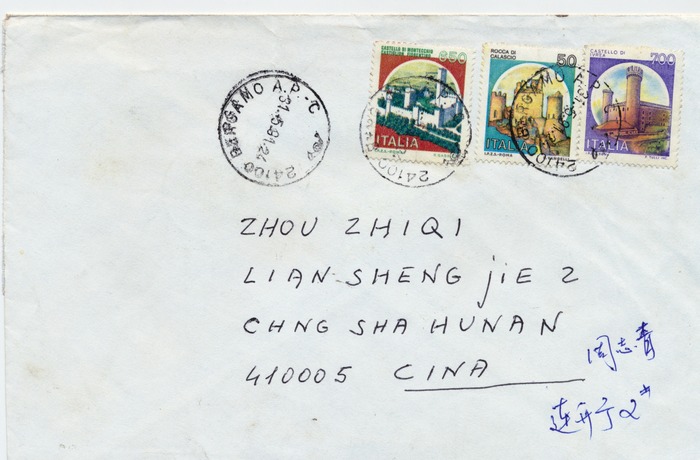 CASTELLO DI MONTECCHIO
CASTIGLION FIORENTINO
650
ITALIA
I.P.Z.S.-ROMA
ROCCA DI
CALASCIO
50
ITALIA
I.P.Z.S.-ROMA
CASTELLO DI
IVREA
700
ITALIA
BERGAMO A.P.-C
31.5.91-24
24100
ZHOU ZHIQI
LIAN-SHENG jiE 2
CHNG SHA HUNAN
410005 CINA
周志青
2#